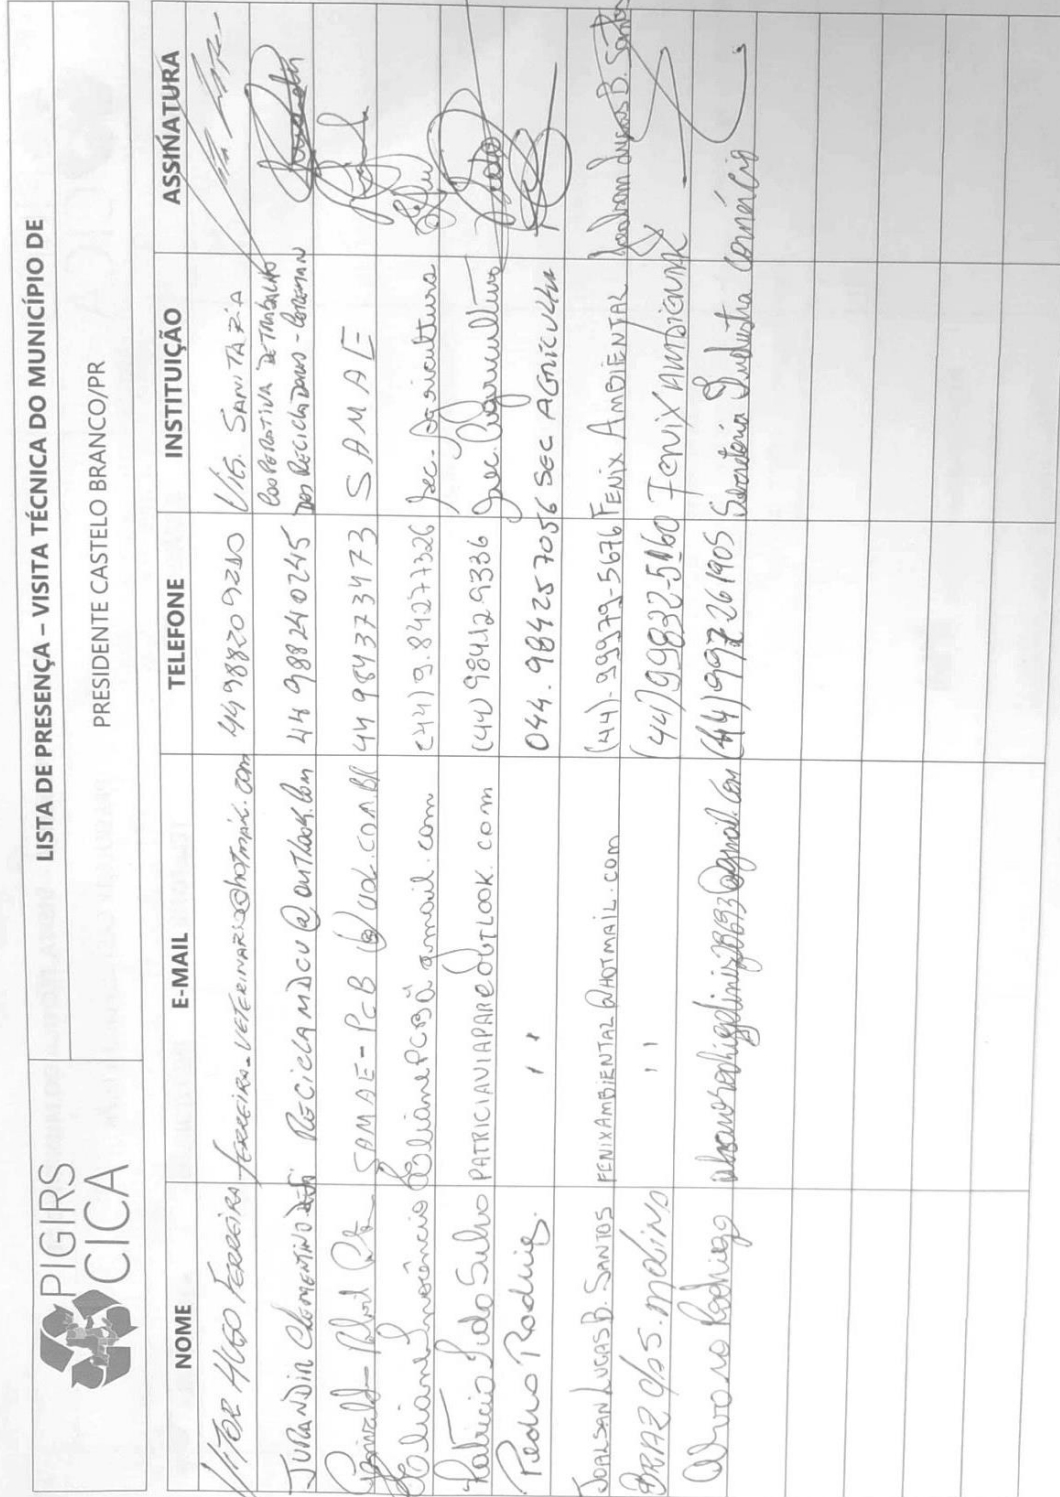 PIGIRS
CICA
LISTA DE PRESENÇA – VISITA TÉCNICA DO MUNICÍPIO DE
PRESIDENTE CASTELO BRANCO/PR
NOME E-MAIL TELEFONE INSTITUIÇÃO ASSINATURA
VITOR HUGO FERREIRA FERREIRA_VETERINARIO@hotmail.com 44988209210 VIG. SANITARIA
JURANDIR CLEMENTINO RECICLAMDCU@outlook.com 44 988240245 COOPERATIVA DE TRABALHO
DOS RECICLADORES - COREMAN
SAMAE-PCB@uol.com.BR 44 984373473 SAMAE
Eliane Inocêncio ElianePCB@gmail.com (44) 9.84277326 Sec. Agricultura
Patricia Prado Silva PATRICIAVIAPAR@OUTLOOK.com (44) 984129336 Sec. Agricultura
Pedro Rodrig. '' 044.984257056 SEC AGRICULTUR
JOALSAN LUCAS B. SANTOS FENIXAMBIENTAL@HOTMAIL.com (44).99979-5676 FENIX AMBIENTAL Joalsan Lucas B. Santos
BRAZ C/S S. MOLINA '' (44) 99832-5160 FENIX AMBIENTAL
Alvaro Rodrigo (44) 997261905 Secretaria Industria Comércio